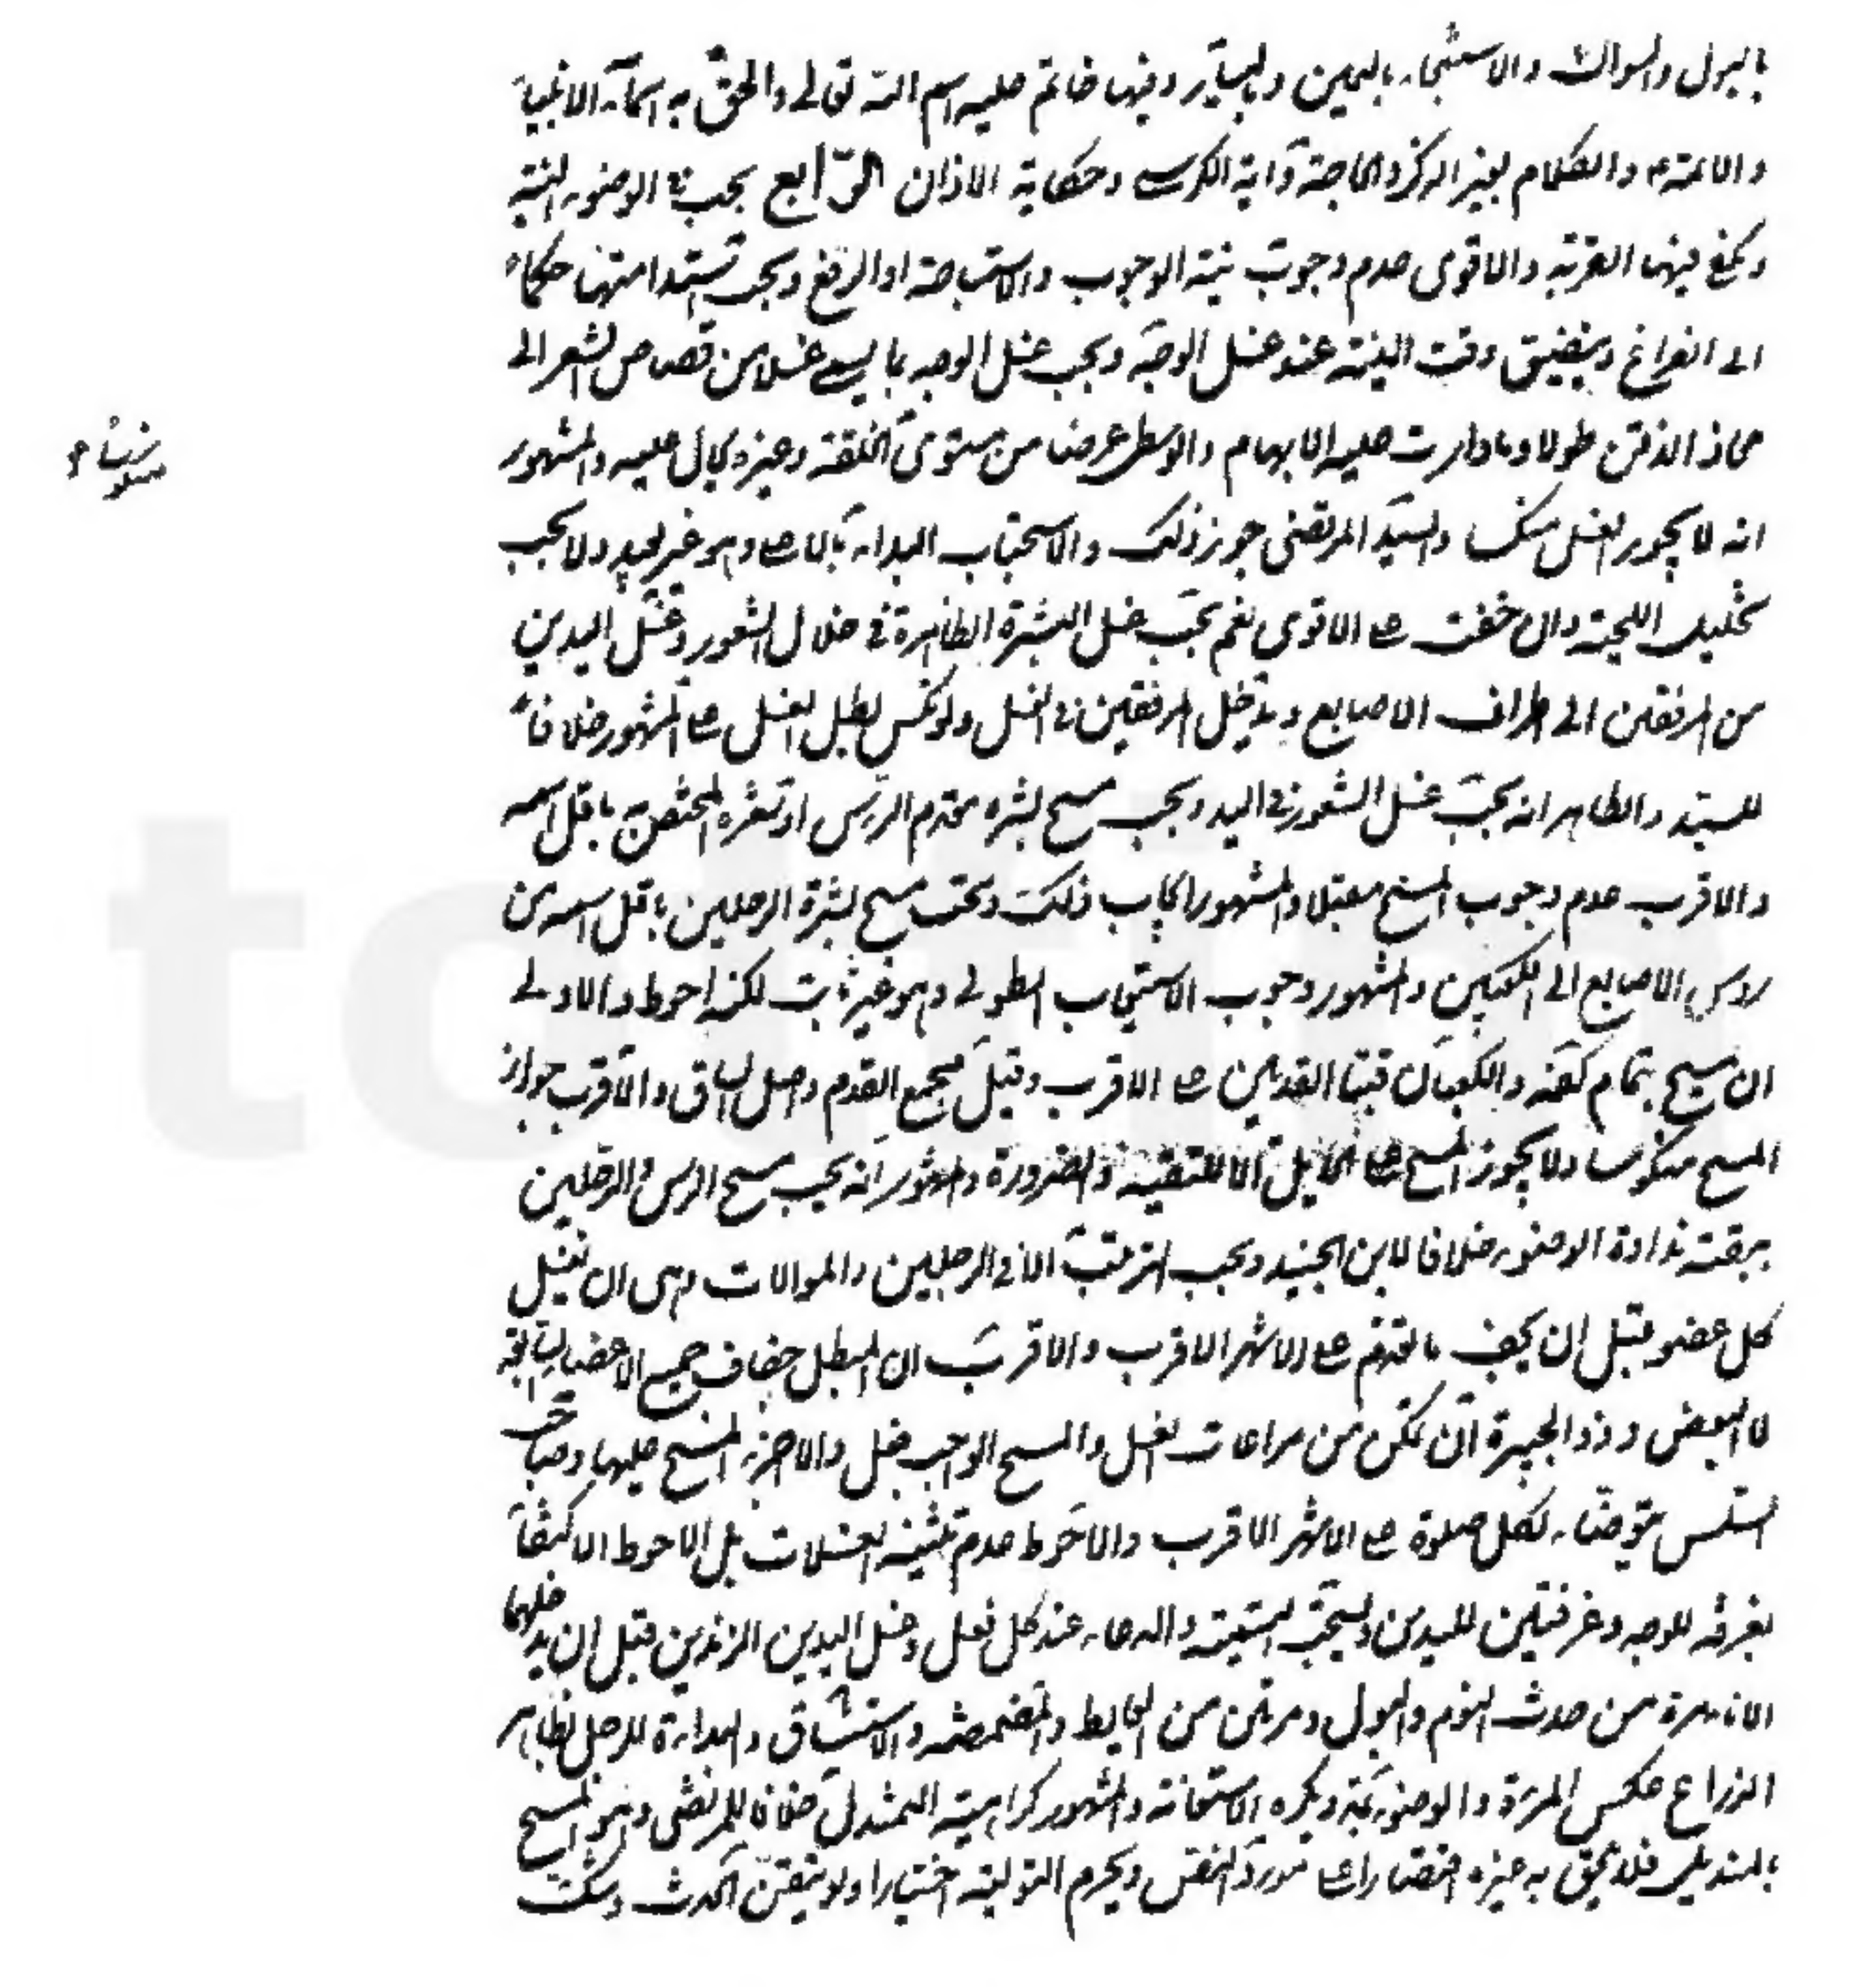 بالبول والسواك والاستنجاء باليمين وباليسار وفيها خاتم عليه اسم الله تعالى والحق به اسماء الانبياء
والائمة والكلام بغير الذكر والحاجة وآية الكرسي وحكاية الاذان الرّابع يجب في الوضوء النية
ويكفي فيها القربة والاقوى عدم وجوب نية الوجوب والاستباحة او الرفع ويجب استدامتها حكماً
الى الفراغ ويتضيق وقت النية عند غسل الوجه ويجب غسل الوجه بما يسمى غسلا من قصاص الشعر الى
محاذ الذقن طولا وما دارت عليه الابهام والوسطى عرضا من مستوى الخلقة وغيره يحال عليه والمشهور
انه لا يجوز الغسل منكسا والسيد المرتضى جوز ذلك والاستحباب البداءة بالاعلى وهو غير بعيد ولا يجب
تخليل اللحية وان خفت على الاقوى نعم يجب غسل البشرة الظاهرة في خلال الشعور وغسل اليدين
من المرفقين الى اطراف الاصابع ويدخل المرفقين في الغسل ولو نكس بطل الغسل على المشهور خلافاً
للسيد والظاهر انه يجب غسل الشعور في اليد ويجب مسح بشرة مقدم الرأس او شعره المختص به باقل اسمه
والاقرب عدم وجوب المسح مقبلا والمشهور ايجاب ذلك ويجب مسح بشرة الرجلين باقل اسمه من
رؤس الاصابع الى الكعبين والمشهور وجوب الاستيعاب الطولي وهو غير ثابت لكنه احوط والاولى
ان يمسح بتمام كفه والكعبان قبتا القدمين على الاقرب وقيل مجمع القدم واصل الساق والاقرب جواز
المسح منكوسا ولا يجوز المسح على الحايل الا للتقية والضرورة والمشهور انه يجب مسح الرأس والرجلين
ببقية نداوة الوضوء خلافا لابن الجنيد ويجب الترتيب الا في الرجلين والموالات وهي ان يغسل
كل عضو قبل ان يجف ما تقدم على الاشهر الاقرب والاقرب ان المبطل جفاف جميع الاعضاء السابقة
لا البعض وذو الجبيرة ان تمكن من مراعات الغسل والمسح الواجب فعل والا اجزء المسح عليها وصاحب
السلس يتوضأ لكل صلوة على الاشهر الاقرب والاحوط عدم تثنية الغسلات بل الاحوط الاكتفاء
بغرفة للوجه وغرفتين لليدين ويستحب التسمية والدعاء عند كل فعل وغسل اليدين الزندين قبل ان يدخلهما
الاناء مرة من حدث النوم والبول ومرتين من الغايط والمضمضة والاستنشاق والبداءة للرجل بظاهر
الذراع عكس المرأة والوضوء بمد ويكره الاستعانة والمشهور كراهية التمندل خلافا للمرتضى وهو المسح
بالمنديل فلا يلحق به غيره اقتصارا على مورد النص ويحرم التولية اختيارا ولو تيقن الحدث وشك